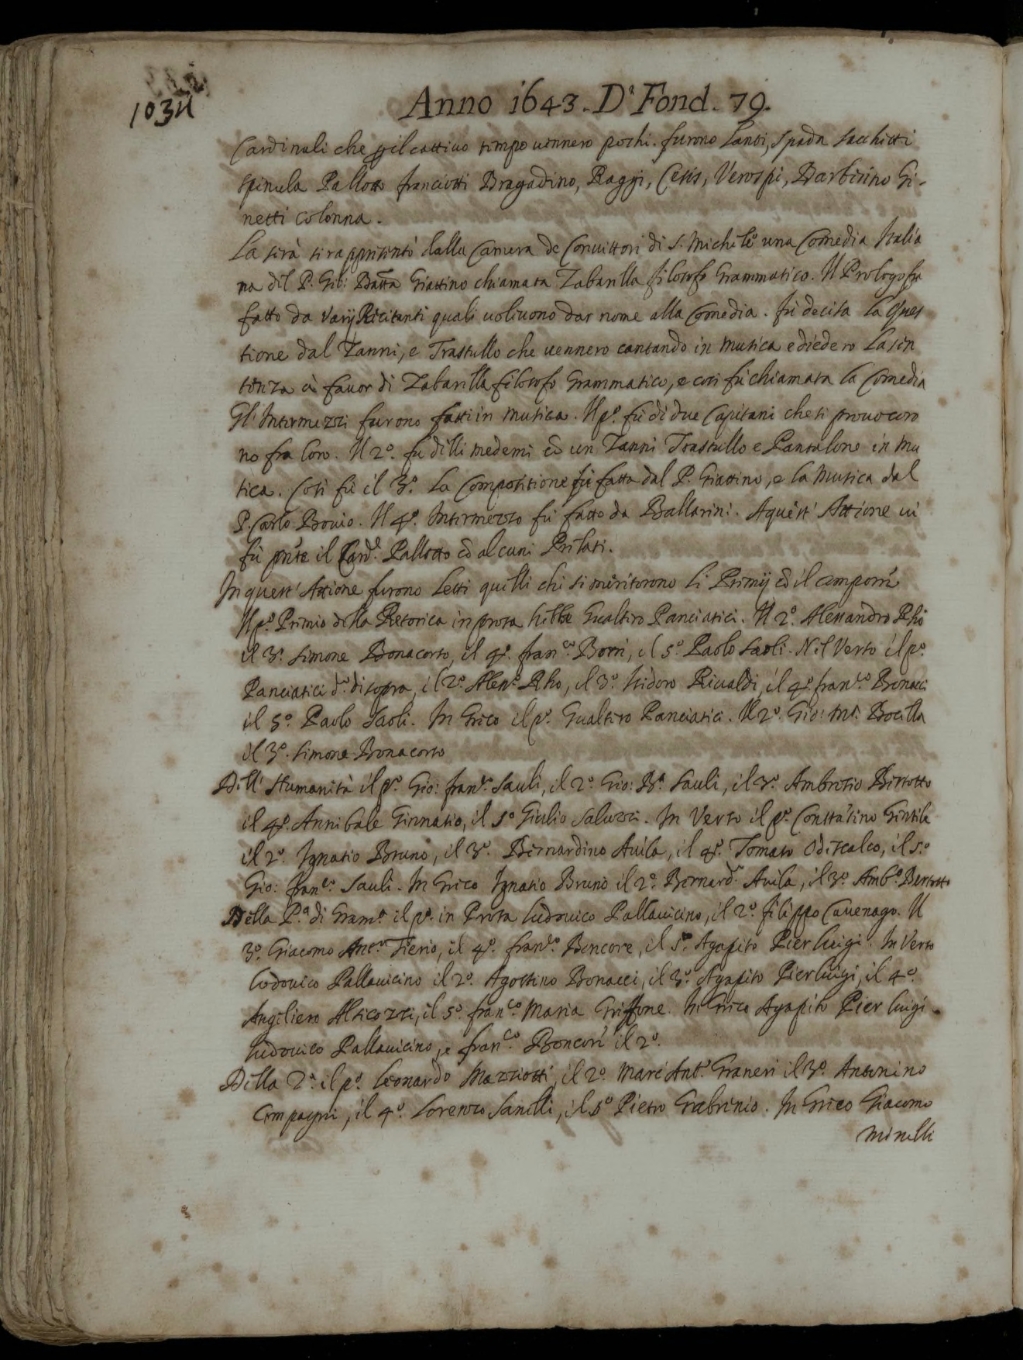 1034
Anno 1643. Di Fond. 79.
Cardinali che p il cattivo tempo vennero pochi. furono Lanti, Spada Sacchetti
Spinula Pallotto franciotti Bragadino, Raggi, Cesis, Verospi, Barberino Gi-
netti colonna.
La sera si rappresentò dalla Camera de Convittori di S. Michele una Comedia Italia
na del P. Gio: Batta Giattino chiamata Zabarella filosofo Grammatico. Il Prologo fu
fatto da Varij Recitanti quali volevono dar nome alla Comedia. fu decisa La Ques
tione dal Zanni, e Trastullo che vennero cantando in musica e diedero La sen
tenza in favor di Zabarella filosofo Grammatico, e così fu chiamata la Comedia
Gl' Intermezzi furono fatti in musica. Il po. fu di due Capitani che si provocoro
no fra loro. Il 2o. fu delli medemi ed un Zanni Trastullo e Pantalone in Mu
sica. Così fù il 3o. La Compositione fù fatta dal P. Giattino, e la Musica dal
P. Carlo Bovio. Il 4o. Intermezzo fù fatto da Ballarini. A quest' Attione vi
fù pnte il Card. Pallotto ed alcuni Prelati.
In quest' Attione furono Letti quelli che si meritorono Li Premij ed il
Il po. Premio della Retorica in prosa hebbe Gualtiro Panciatici. Il 2o. Alessandro Rho
il 3o. Simone Bonacorso, il 4o. franco Borri, il 5o Paolo Saoli. Nel Verso il po
Panciatici do. di sopra, il 2o. Alessro Rho, il 3o. Isidoro Rivaldi, il 4o. franco Bonacci
il 5o. Paolo Saoli. In Greco il po. Gualtiro Panciatici. Il 2o. Gio: Bocella
il 3o. Simone Bonacorso
Dell' Humanità il po. Gio: franco Sauli, il 2o Gio: Ba Sauli, il 3o. Ambrosio
il 4o. Annibale Ginnasio, il 5o Giulio Saluzzi. In Verso il po. Constantino Gentile
il 2o. Ignatio Bruno, il 3o. Bernardino Avila, il 4o. Tomaso Odescalco, il 5o
Gio: franco. Sauli. In Greco Ignatio Bruno il 2o. Bernardo Avila, il 3o. Ambo Bertotto
Della Pa di Grama il po. in Prosa Ludovico Pallavicino, il 2o. filippo Cavenago. Il
3o. Giacomo Anto Fierio, il 4o. franco Bencore, il 5o Agapito Pierluigi. In Verso
Lodovico Pallavicino il 2o. Agostino Bonacci, il 3o. Agapito Pierluigi, il 4o.
Angiliero Alticozzi, il 5o. franco Maria Griffone. In Greco Agapito Pier luigi
Ludovico Pallavicino, e franco. Boncori il 2o.
Della 2a. il po. Leonardo Mazziotti, il 2o. Marc Anto Graneri il 3o. Antonino
Compagni, il 4o. Lorenzo Sanelli, il 5o Pietro Gabrinio. In Greco Giacomo
Minelli